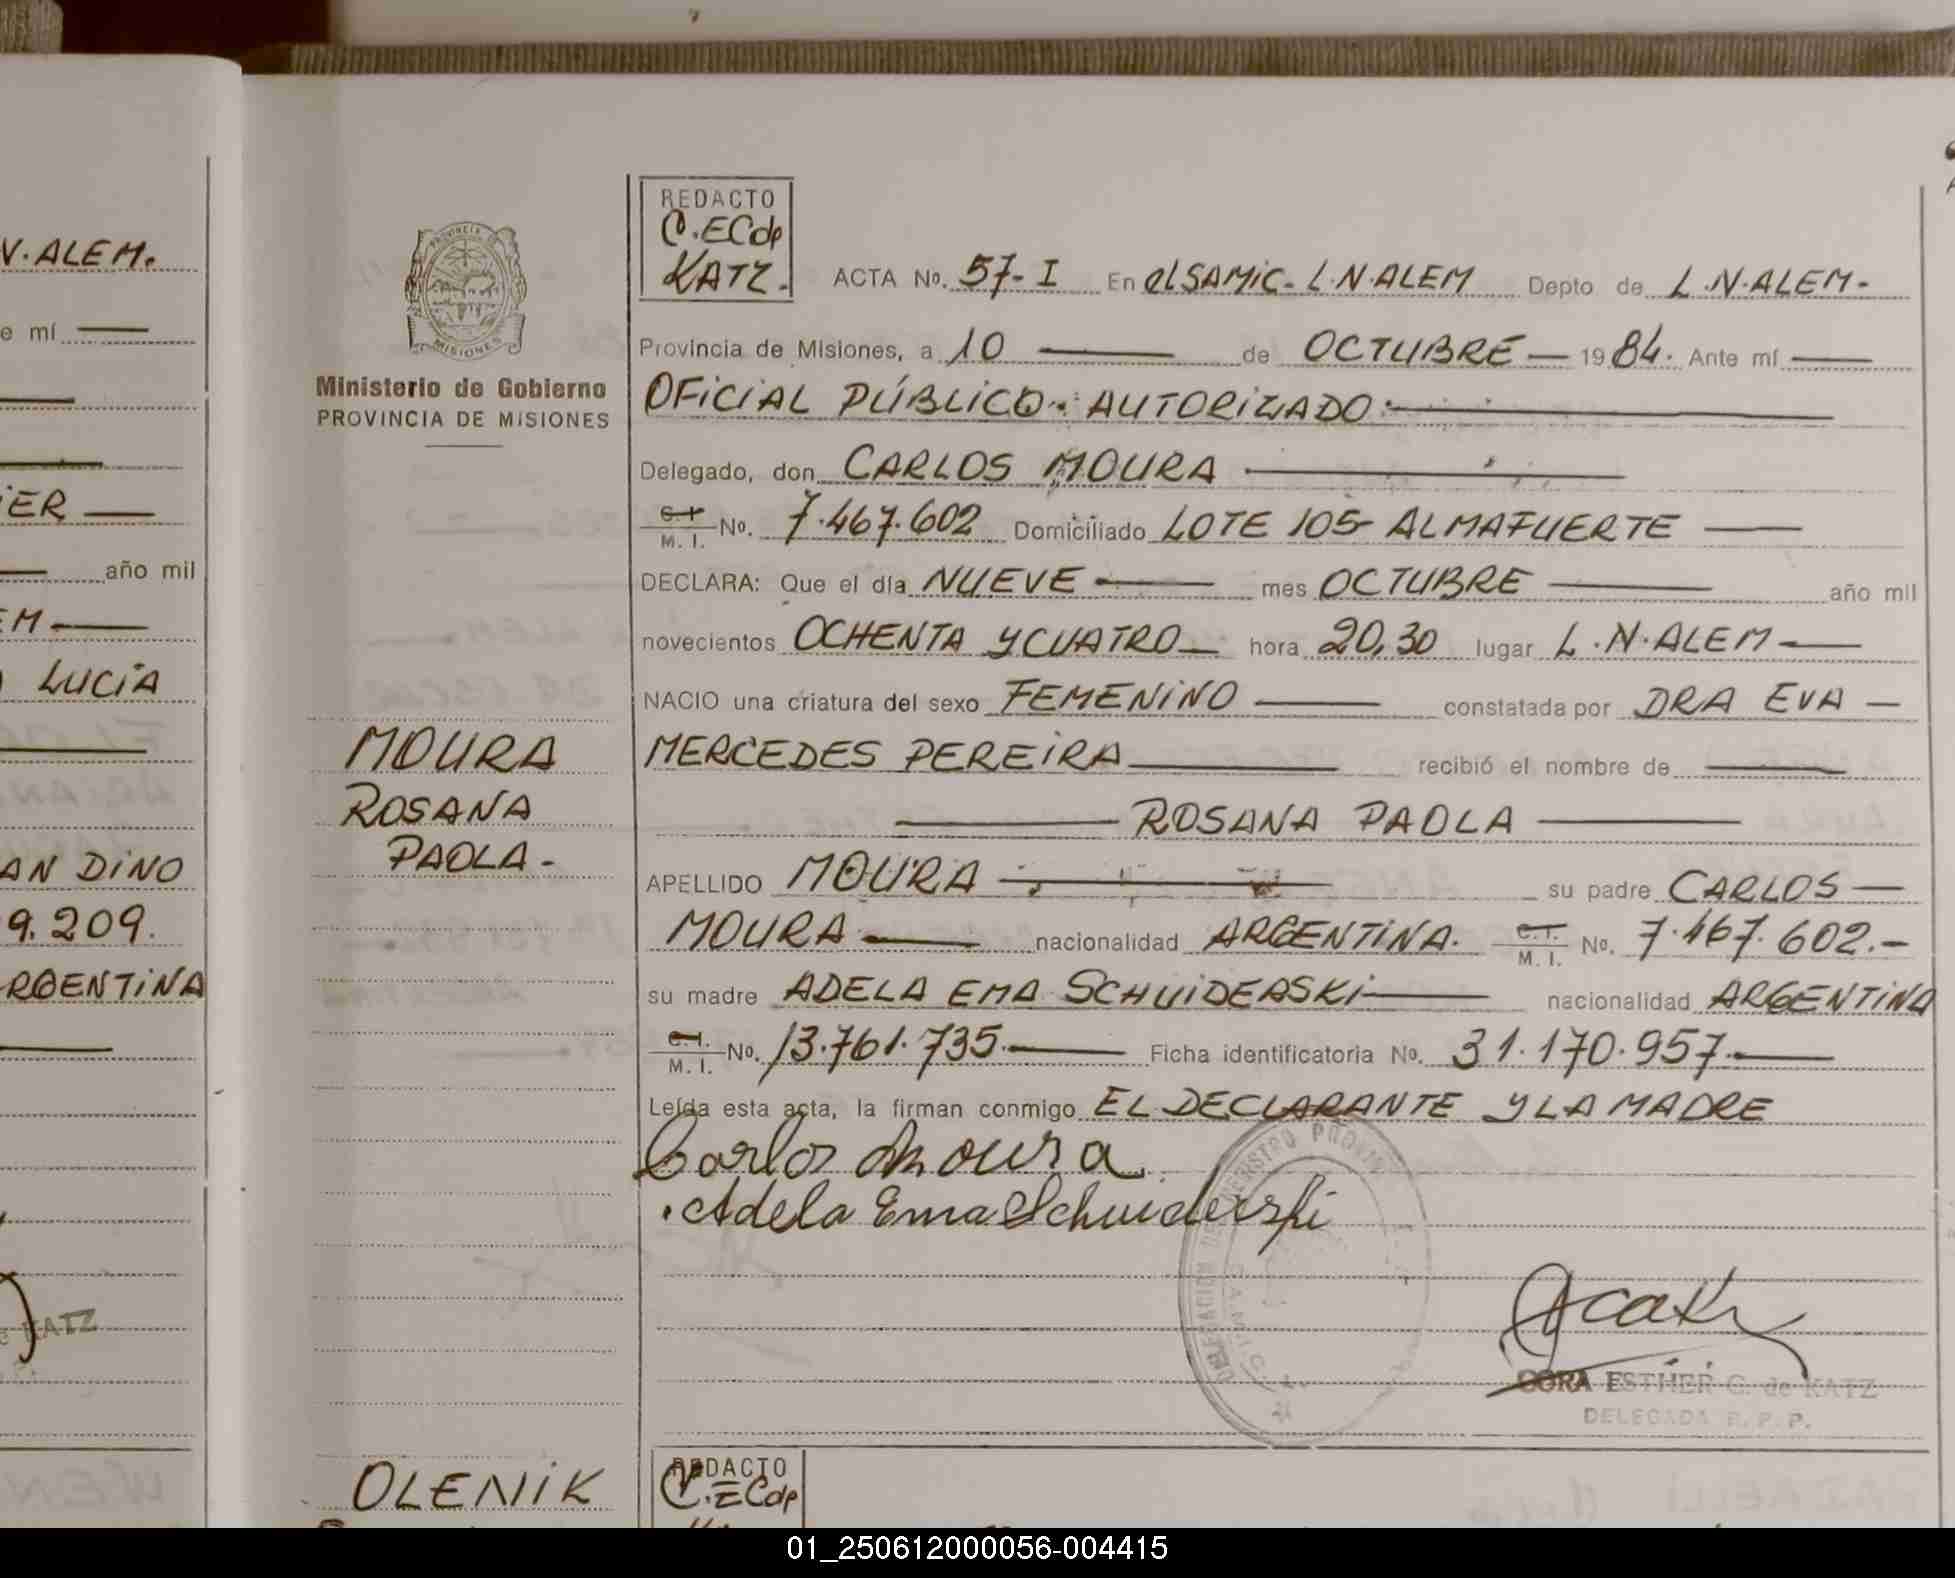 V. ALEM.
e mí
iER
año mil
EM
LUCÍA
AN DINO
9.209.
RGENTINA
KATZ
PROVINCIA DE
MISIONES
Ministerio de Gobierno
PROVINCIA DE MISIONES
MOURA
ROSANA
PAOLA-
REDACTO
C.ECdp
KATZ.
ACTA No. 57-I En el SAMIC- L.N.ALEM Depto de L.N.ALEM-
Provincia de Misiones, a 10 de OCTUBRE 1984. Ante mí
OFICIAL PÚBLICO AUTORIZADO
Delegado, don CARLOS MOURA
C.I.
M. I. No. 7.467.602 Domiciliado LOTE 105- ALMAFUERTE
DECLARA: Que el día NUEVE mes OCTUBRE año mil
novecientos OCHENTA Y CUATRO hora 20,30 lugar L.N.ALEM
NACIO una criatura del sexo FEMENINO constatada por DRA EVA
MERCEDES PEREIRA recibió el nombre de
ROSANA PAOLA
APELLIDO MOURA su padre CARLOS
MOURA nacionalidad ARGENTINA. C.I. M. I. No. 7.467.602.-
su madre ADELA EMA SCHUIDERSKI nacionalidad ARGENTINA
C.I.
M. I. No. 13.761.735. Ficha identificatoria No. 31.170.957.
Leída esta acta, la firman conmigo EL DECLARANTE Y LA MADRE
Carlos Moura
Adela Ema Schuiderski
CORA ESTHER C. de KATZ
DELEGADA R. P. P.
OLENIK
REDACTO
C.ECdp
01_250612000056-004415